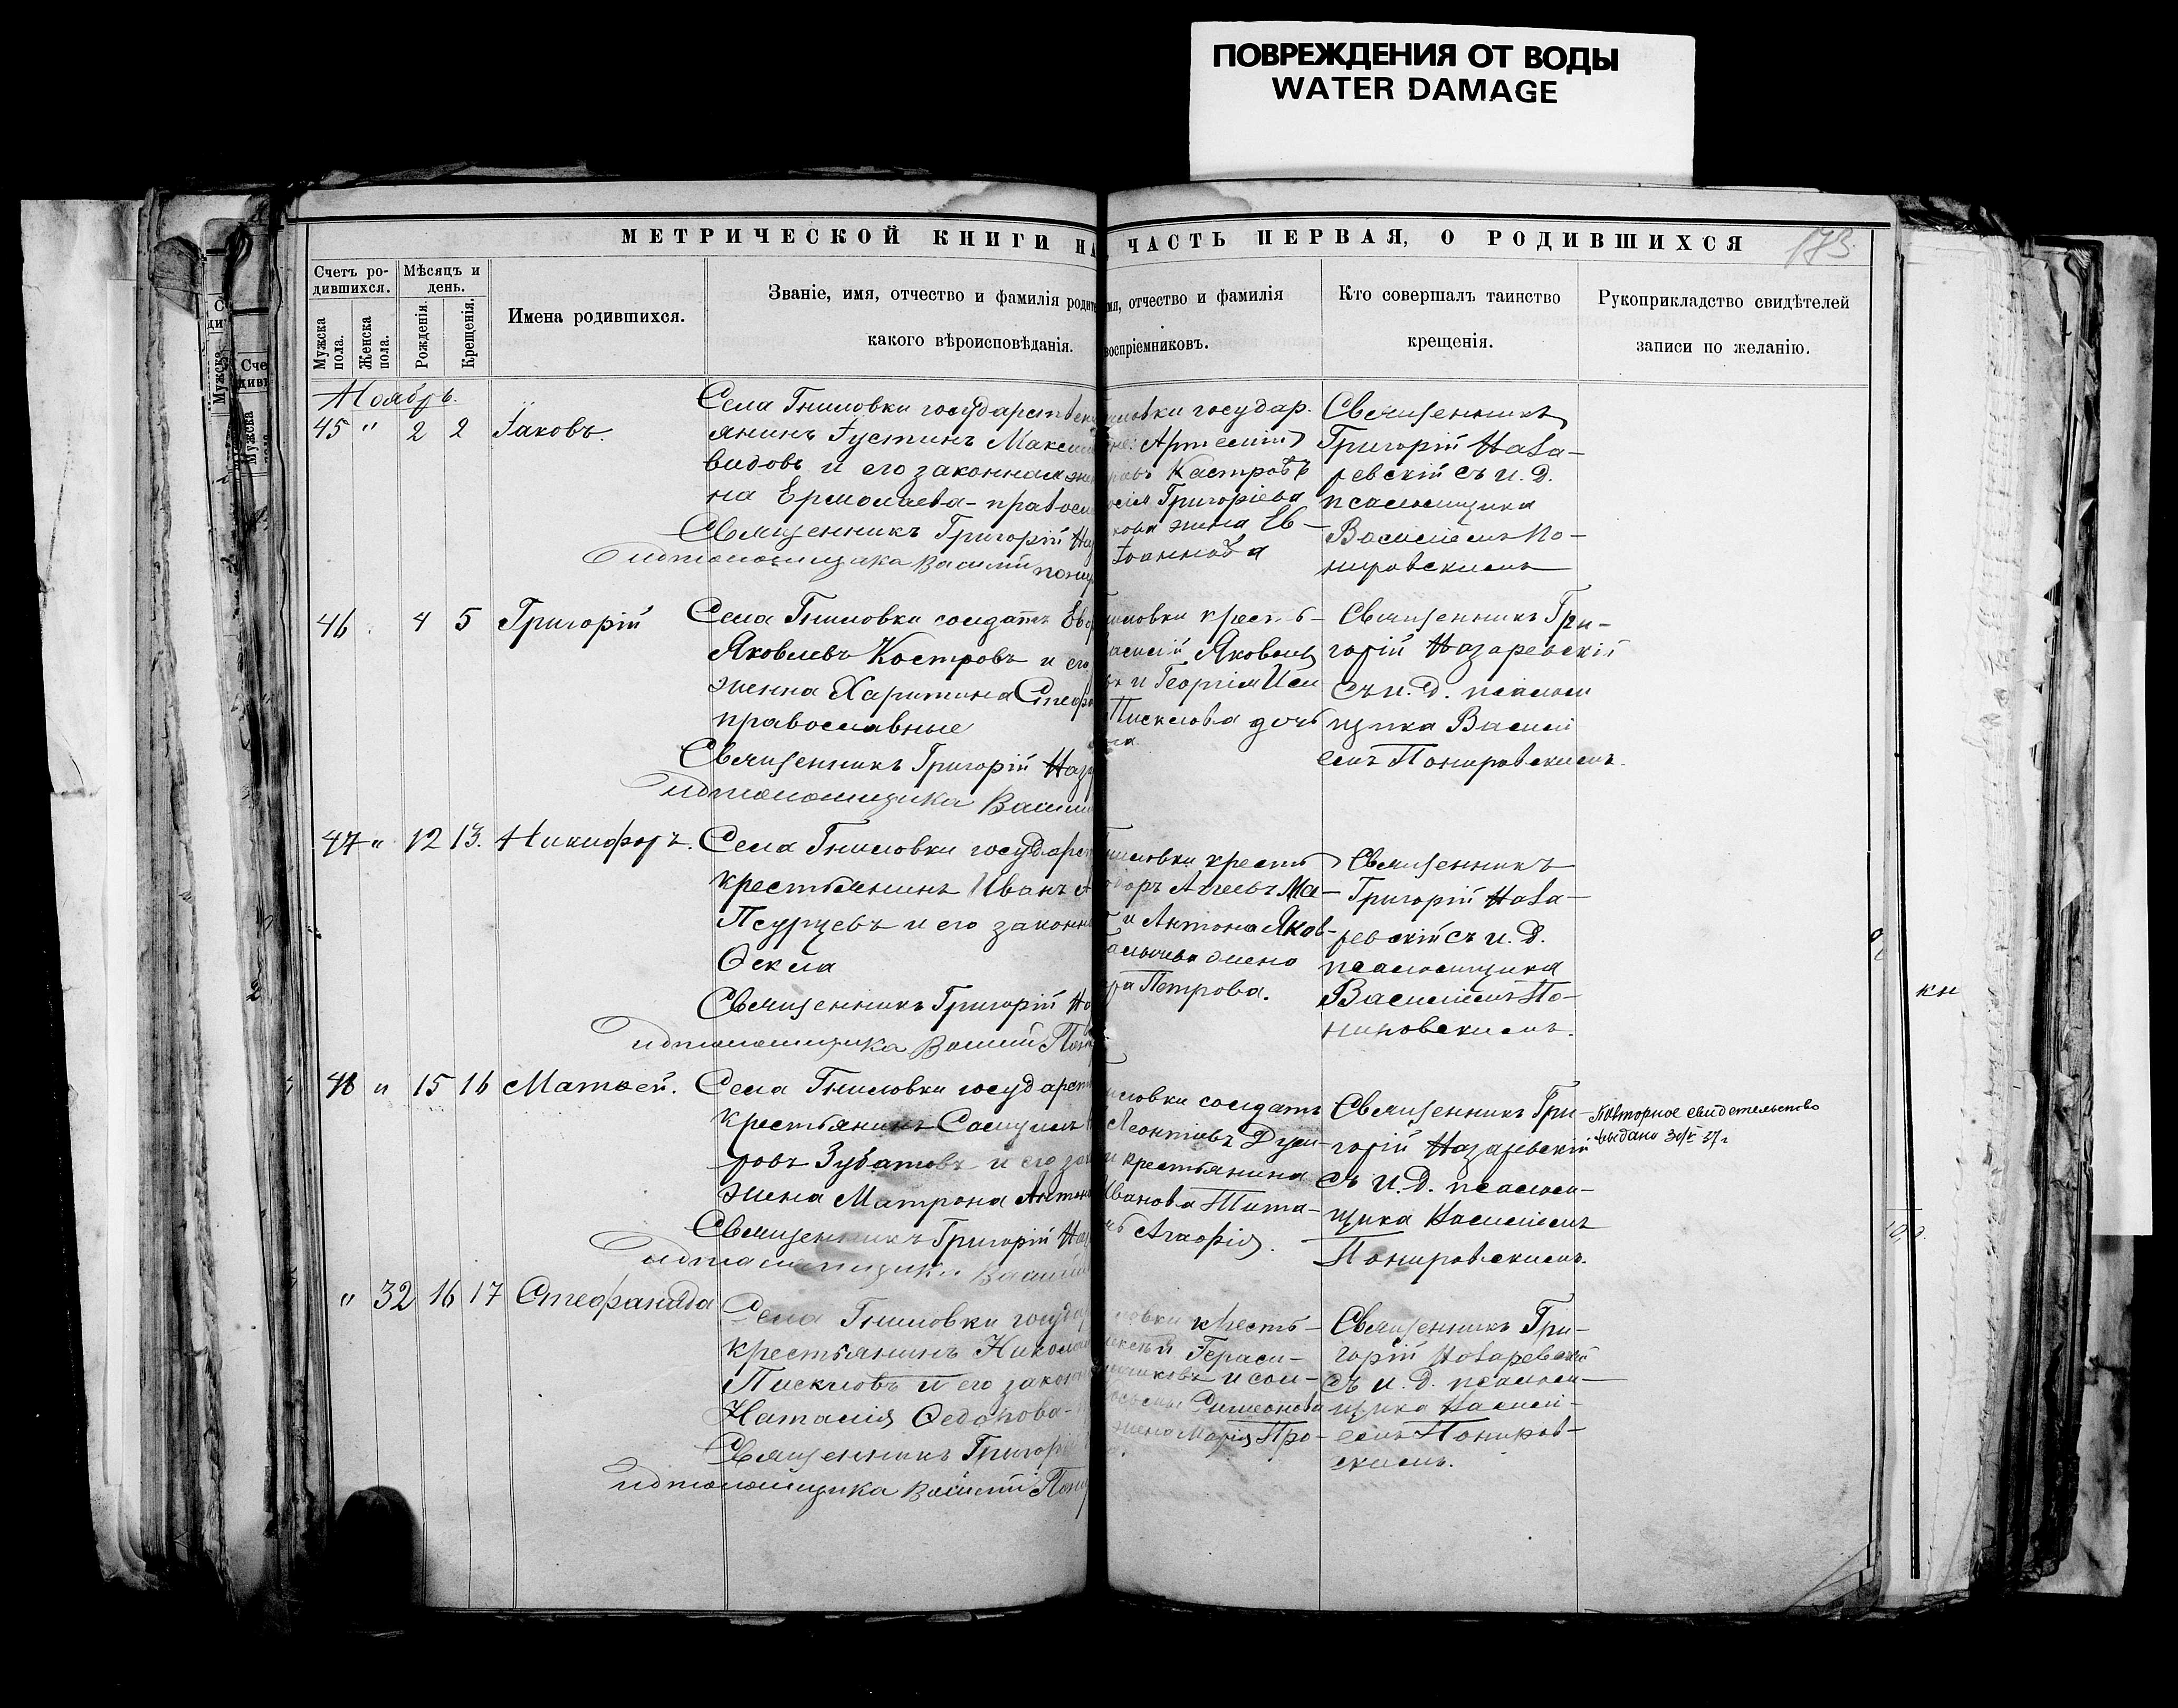 ПОВРЕЖДЕНИЯ ОТ ВОДЫ
WATER DAMAGE
МЕТРИЧЕСКОЙ КНИГИ НА
ЧАСТЬ ПЕРВАЯ, О РОДИВШИХСЯ
173
Счетъ ро-
дившихся.
Мѣсяцъ и
день.
Мужска
пола.
Женска
пола.
Рожденія.
Крещенія.
Имена родившихся.
Званіе, имя, отчество и фамилія родите
какого вѣроисповѣданія.
мя, отчество и фамилія
воспріемниковъ.
Кто совершалъ таинство
крещенія.
Рукоприкладство свидѣтелей
записи по желанію.
Ноябрь.
45 " 2 2 Іаковъ.
Села Гниловки государствен
янинъ Іустинъ Макси
видовъ и его законная же
на Ермолаева - правосл
Священникъ Григорій Наз
И д псаломщика Василій Пони
ниловки государ.
Артемій
Кастровъ
Григоріева
кова жена Ев-
Іоаннова
Священникъ
Григорій Наза-
ревскій съ и. д.
псаломщика
Василіемъ По-
нировскимъ
46 4 5 Григорій
Села Гниловки солдатъ Ев
Яковлевъ Костровъ и его
женна Харитина Стеф
православные
Священникъ Григорій Наза
И д псаломщика Васили
ниловки кресть-
асилій Яковлев
и Георгія
Пискловa дочь
Священникъ Гри-
горій Назаревскій
съ и. д. псалом
щика Васили
емъ Понировскимъ.
47 " 12 13. Никифоръ.
Села Гниловки государст
крестьянинъ Иванъ А
Псурцевъ и его законна
Ѳекла
Священникъ Григорій На
И д псаломщика Василій Пон
ниловки кресть
доръ Агеевъ Ма-
и Антона Яков-
жена
ра Петрова.
Священникъ
Григорій Наза-
ревскій съ и. д.
псаломщика
Василіемъ По-
нировскимъ.
48 " 15 16 Матѳей.
Села Гниловки государст
крестьянинъ Самуилъ
ровъ Зубатовъ и его зак
жена Матрона Антон
Священникъ Григорій Наз
И д псаломщика Васили
иловки солдатъ
Леонтіевъ
и крестьянина
Иванова Тита-
Агафія.
Священникъ Гри-
горій Назаревскій
съ и. д. псалом-
щика Василіемъ
Понировскимъ.
Повторное свидетельство
выдано
" 32 16 17 Стефанида
Села Гниловки госуда
крестьянинъ Никола
Пискловъ и его законн
Наталія Ѳедорова-
Священникъ Григорій
И д псаломщика Василій Пони
ловки кресть-
лексѣй Гераси-
и сол-
Симеонова
жена Марія Про-
Священникъ Гри-
горій Назаревскій
съ и. д. псалом-
щика Васили-
емъ Пониров-
скимъ.
кн